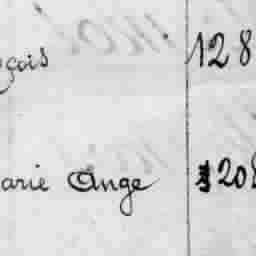 çois 128
arie Ange 208